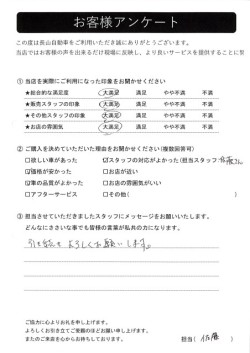 お客様アンケート
この度は長山自動車をご利用いただき誠にありがとうございます。
当店ではお客様の声を出来るだけ現場に反映し、より良いサービスを提供することに努
① 当店を実際にご利用になった印象をお聞かせください
★総合的な満足度 大満足 満足 やや不満 不満
★販売スタッフの印象 大満足 満足 やや不満 不満
★その他スタッフの印象 大満足 満足 やや不満 不満
★お店の雰囲気 大満足 満足 やや不満 不満
② ご購入を決めていただいた理由をお聞かせください(複数回答可)
□欲しい車があった ☑スタッフの対応がよかった(担当スタッフ:佐藤さん
☑価格が安かった □お店が近い
☑車の品質がよかった □お店の雰囲気がいい
□アフターサービス □その他(
③ 担当させていただきましたスタッフにメッセージをお願いいたします。
どんなにささいな事でも皆様の言葉が私共の力になります。
引き続きよろしくお願いします。
ご協力に心よりお礼を申し上げます。
よろしくお引き立てご愛顧のほどお願い申し上げます。
またのご来店を心からお待ちしております。
担当( 佐藤